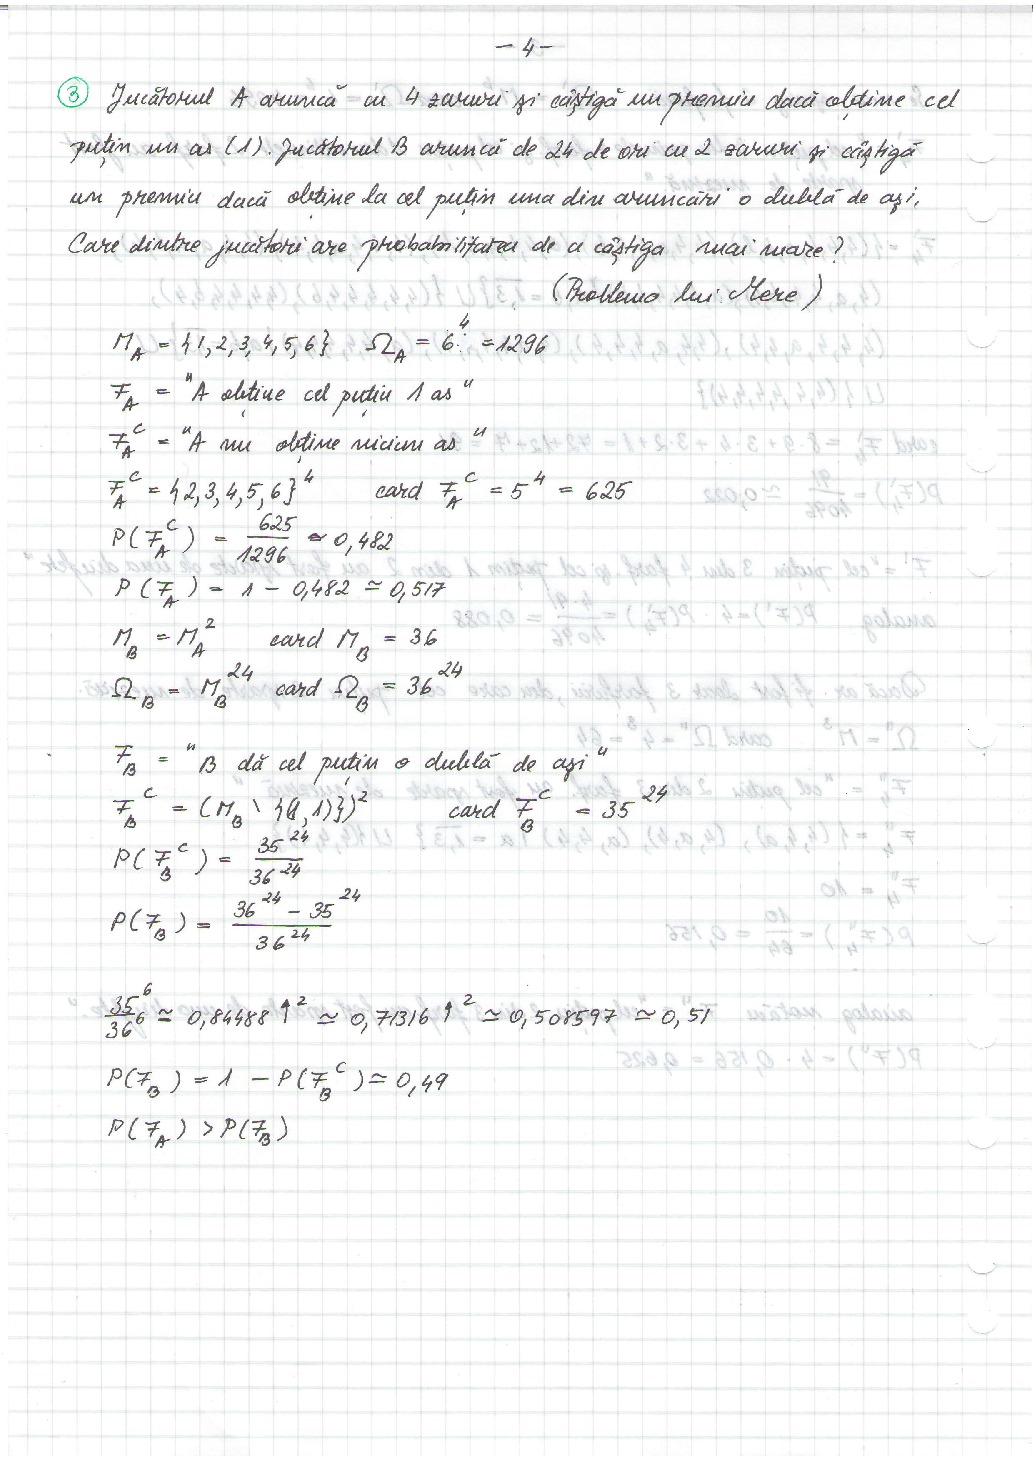 - 4 -
③ Jucătorul A aruncă cu 4 zaruri și câștigă un premiu dacă obține cel
puțin un as (1). Jucătorul B aruncă de 24 de ori cu 2 zaruri și câștigă
un premiu dacă obține la cel puțin una din aruncări o dublă de ași.
Care dintre jucători are probabilitatea de a câștiga mai mare?
(Problema lui Mere)
M_A = {1,2,3,4,5,6} Ω_A = 6^4 = 1296
F_A = "A obține cel puțin 1 as"
F_A^C = "A nu obține niciun as"
F_A^C = {2,3,4,5,6}^4 card F_A^C = 5^4 = 625
P(F_A^C) = 625/1296 ≃ 0,482
P(F_A) = 1 - 0,482 ≃ 0,517
M_B = M_A^2 card M_B = 36
Ω_B = M_B^24 card Ω_B = 36^24
F_B = "B dă cel puțin o dublă de ași"
F_B^C = (M_B \ {(1,1)})^2 card F_B^C = 35^24
P(F_B^C) = 35^24/36^24
P(F_B) = (36^24 - 35^24)/36^24
35^6/36^6 ≃ 0,84488 ↑^2 ≃ 0,71316 ↑^2 ≃ 0,508597 ≃ 0,51
P(F_B) = 1 - P(F_B^C) ≃ 0,49
P(F_A) > P(F_B)